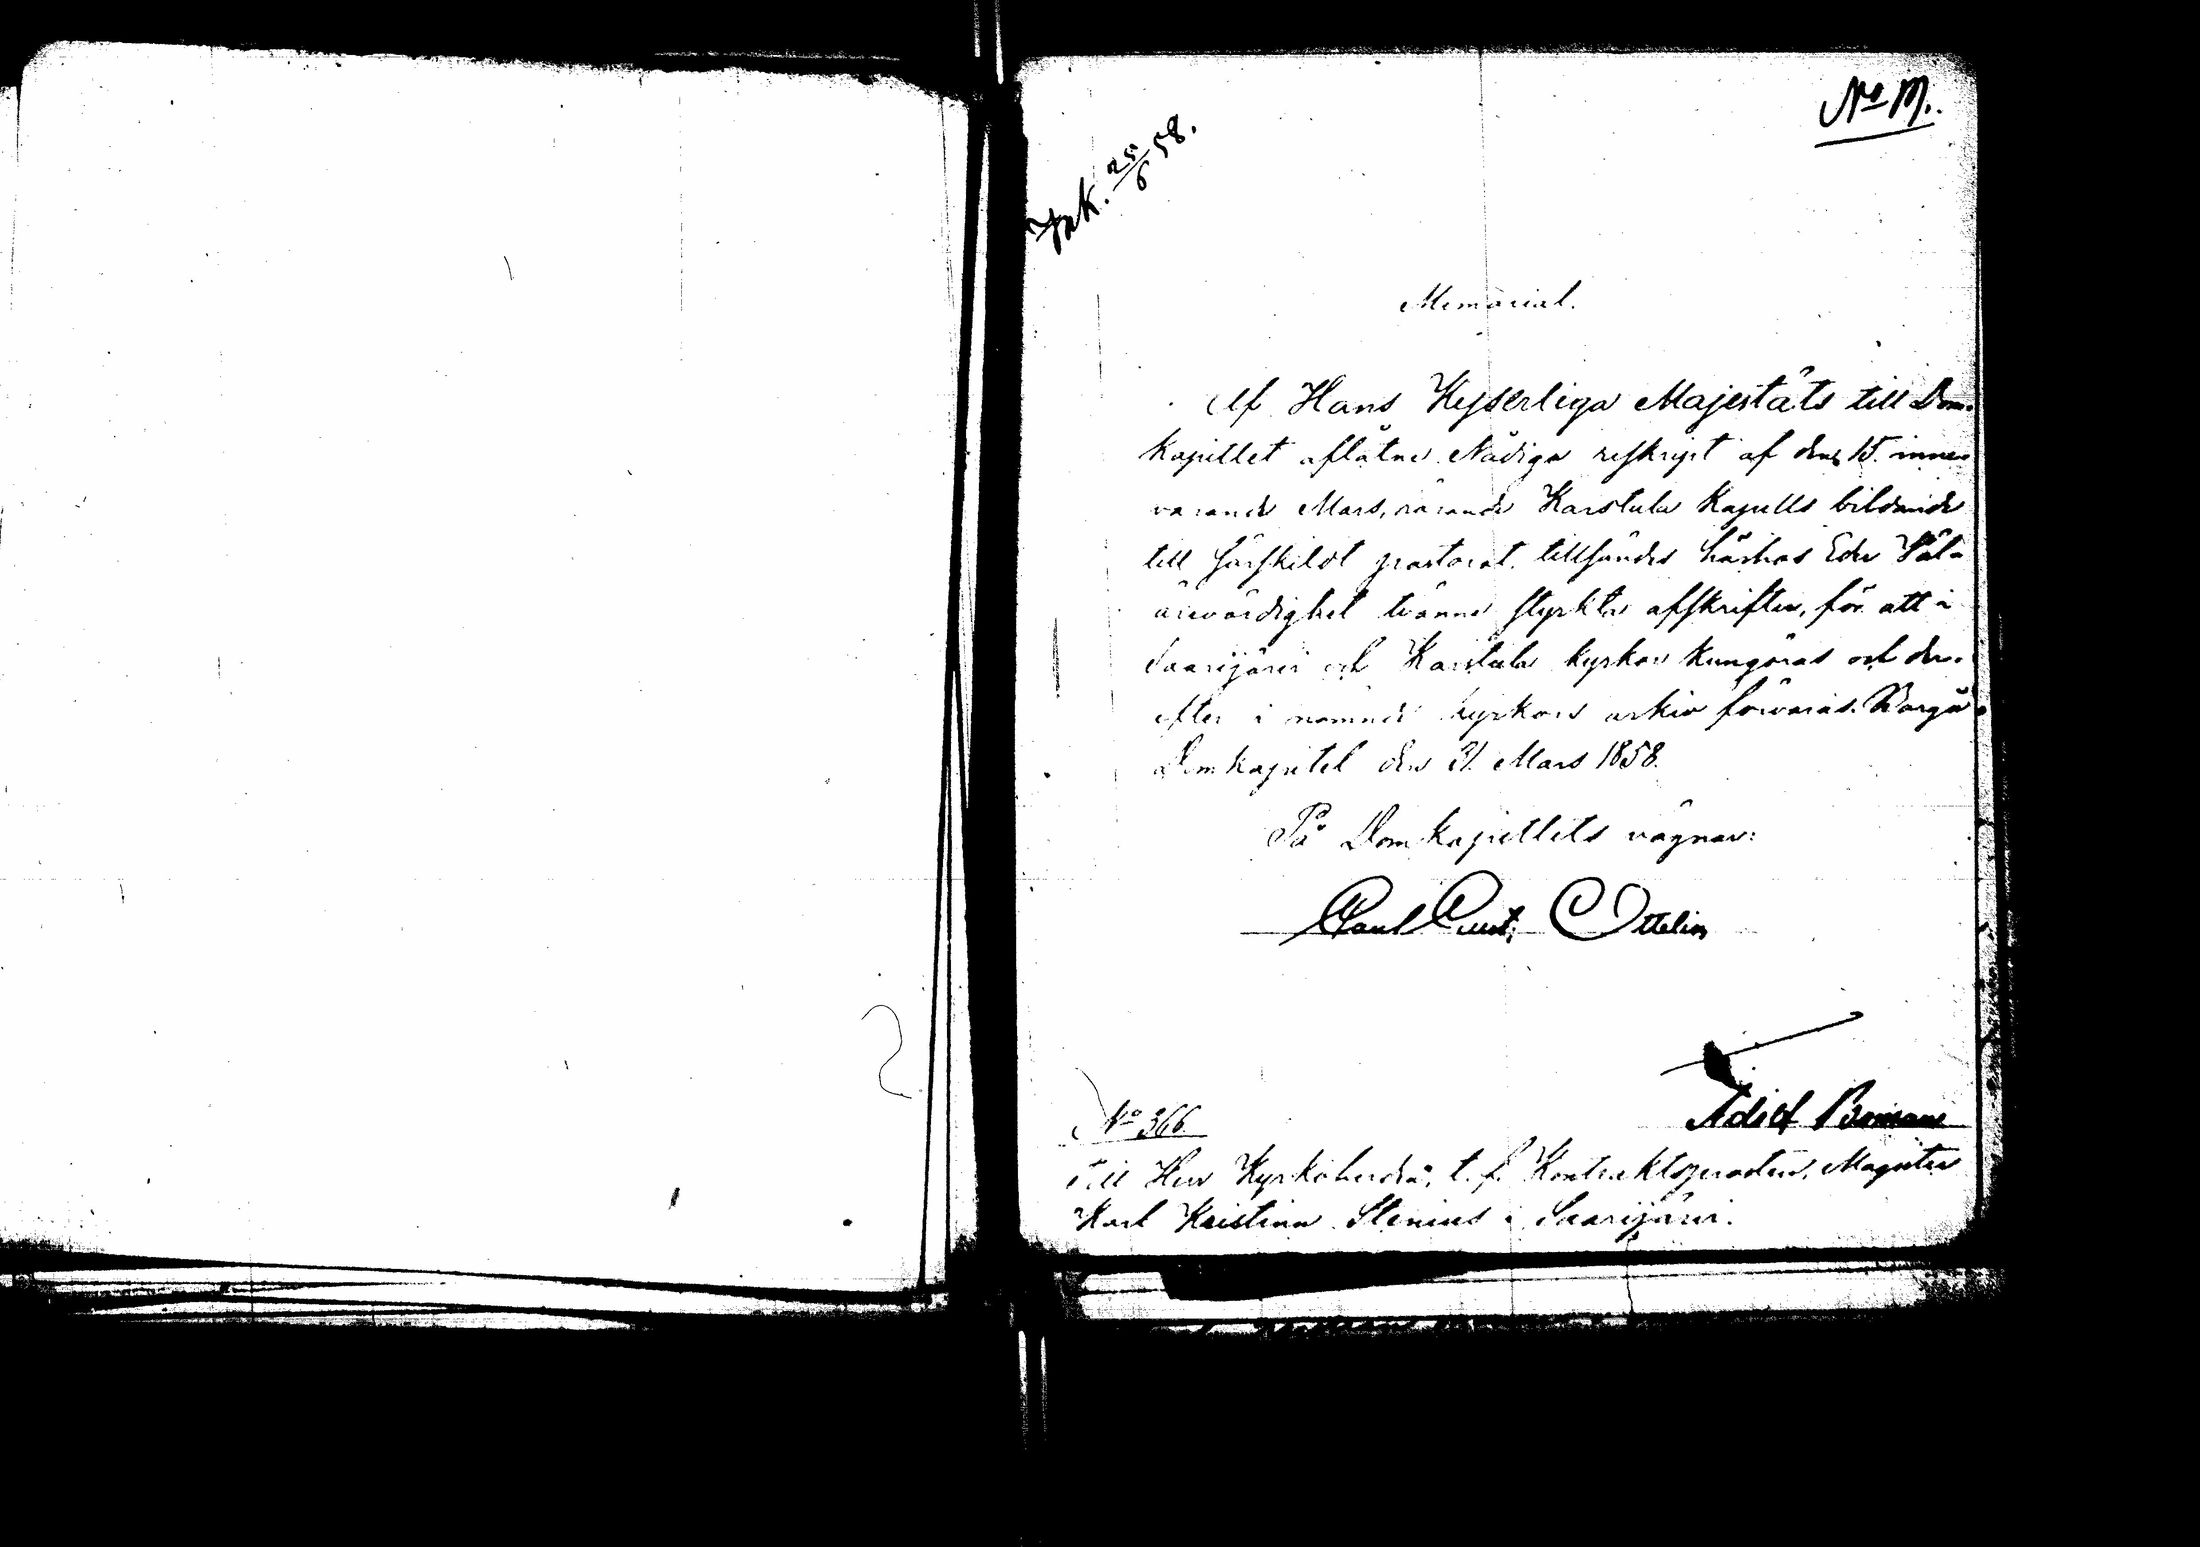 No M.
Ink. 25/6 58.
Memorial.
Af Hans Kejserliga Majestäts till Dom-
kapitlet aflåtna Nådiga reskript af den 15. inne-
varande Mars, rörande Karstula Kapells bildande
till särskildt pastorat, tillsändes härhos Eder Väl-
ärevördighet tvänne styrkta afskrifter, för att i
Saarijärvi och Karstula kyrkor kungöras och der-
efter i nämnde kyrkors arkiv förvaras. Borgå
Domkapitel den 31. Mars 1858.
På Domkapitlets vägnar:
Carl Gust. Ottelin
No 366.
Till Herr Kyrkoherden, t. f. Kontraktsprosten, Magister
Karl Kristian Stenius i Saarijärvi.